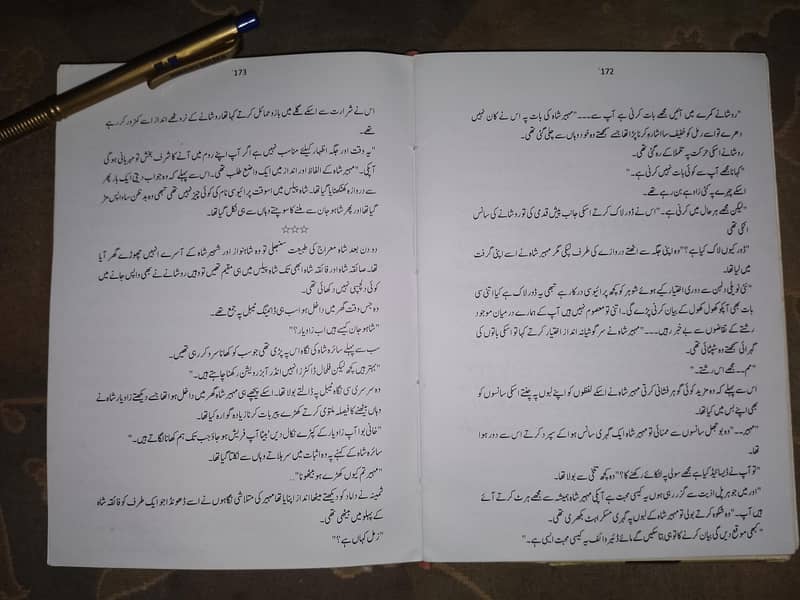 172'
"روشانے کمرے میں آئیں مجھے بات کرنی ہے آپ سے۔۔۔" مہبیر شاہ کی بات پہ اس نے کان نہیں
دھرے تو اسے رمل کو خفیف سا اشارہ کرنا پڑا تھا جسے سمجھتے وہ خود وہاں سے چلی گئی تھی۔
روشانے اسکی حرکت پہ تلملا کے رہ گئی تھی۔
"کہا نا مجھے آپ سے کوئی بات نہیں کرنی ہے۔"
اسکے چہرے پہ کئی زاویے بن رہے تھے۔
"لیکن مجھے ہر حال میں کرنی ہے۔" اس نے ڈور لاک کرتے اسکی جانب پیش قدمی کی تو روشانے کی سانس
اٹکی تھی
"ڈور کیوں لاک کیا ہے؟" وہ اپنی جگہ سے اٹھتے دروازے کی طرف لپکی مگر مہبیر شاہ نے اسے اپنی گرفت
میں لیا تھا۔
"نئی نویلی دلہن سے دوری اختیار کیے ہوئے شوہر کو کچھ پرائیوسی درکار ہے تبھی یہ ڈور لاک ہے کیا اتنی سی
بات بھی آپکو کھول کھول کے بیان کرنی پڑے گی۔ اتنی تو معصوم نہیں ہیں آپ کے ہمارے درمیان موجود
رشتے کے تقاضوں سے بے خبر رہیں۔۔۔" مہبیر شاہ نے سرگوشیانہ انداز اختیار کرتے کہا تو اسکی باتوں کی
گہرائی سمجھتے وہ سٹپٹائی تھی۔
"مم۔۔ مجھے اس رشتے۔"
اس سے پہلے کہ وہ مزید کوئی گوہر فشانی کرتی مہبیر شاہ نے اسکے لفظوں کو اپنے لبوں پہ چنتے اسکی سانسوں کو
بھی اپنے بس میں کیا تھا۔
"مہبیر۔۔" وہ بوجھل سانسوں سے ممنائی تو مہبیر شاہ ایک گہری سانس ہوا کے سپرد کرتے اس سے دور ہوا
تھا۔
"تو آپ نے ڈیسائیڈ کیا ہے مجھے سولی پہ لٹکائے رکھنے کا؟" وہ کچھ تلخی سے بولا تھا۔
"اور میں جو ہر پل اذیت سے گزر رہی ہوں یہ کیسی محبت ہے آپکی مہبیر شاہ ہمیشہ سے مجھے ہرٹ کرتے آئے
ہیں آپ۔" وہ شکوہ کرتے بولی تو مہبیر شاہ کے لبوں پہ گہری مسکراہٹ بکھری تھی۔
"کبھی موقع دیں گی بیان کرنے کا تو ہی بتا سکیں گے مائے ڈئیر وائف یہ کیسی محبت ایسی ہے۔"
173'
اس نے شرارت سے اسکے گلے میں بازو حمائل کرتے کہا تھا روشانے کے نروٹھے انداز اسے کمزور کر رہے
تھے۔
"یہ وقت اور جگہ اظہار کیلئے مناسب نہیں ہے اگر آپ اپنے روم میں آنے کا شرف بخش تو مہربانی ہوگی
آپکی۔" مہبیر شاہ کے الفاظ اور انداز میں ایک واضح طلب تھی۔ اس سے پہلے کہ وہ جواب دیتی ایک بار پھر
سے دروازہ کھٹکھٹایا گیا تھا۔ شاہ پیلس میں اسوقت پرائیوسی نام کی کوئی چیز نہیں تھی تبھی وہ بدظن سا واپس مڑ
گیا تھا اور پھر شاہو جان سے ملنے کا سوچتے وہاں سے ہی نکل گیا تھا۔
☆☆☆
دو دن بعد شاہ معراج کی طبیعت سنبھلی تو وہ شاہنواز اور شہیر شاہ کے آسرے انہیں چھوڑے گھر آیا
تھا۔ صائقہ شاہ اور فائقہ شاہ ابھی تک شاہ پیلس میں ہی مقیم تھیں تو وہیں روشانے نے بھی واپس جانے میں
کوئی دلچسپی نہیں دکھائی تھی۔
وہ جس وقت گھر میں داخل ہوا سب ہی ڈائننگ ٹیبل پہ جمع تھے۔
"شاہو جان کیسے ہیں اب زاویار؟"
سب سے پہلے سائرہ شاہ کی نگاہ اس پہ پڑی تھی جو سب کو کھانا سرو کر رہی تھیں۔
"بہتر ہیں کچھ لیکن فلحال ڈاکٹرز انہیں انڈر آبزرویشن رکھنا چاہتے ہیں۔"
وہ سرسری سی نگاہ ٹیبل پہ ڈالتے بولا تھا۔ اسکے پیچھے ہی مہبیر شاہ گھر میں داخل ہوا تھا جسے دیکھتے زاویار شاہ نے
وہاں بیٹھنے کا فیصلہ ملتوی کرتے کھڑے پیر بات کرنا زیادہ گوارہ کیا تھا۔
"خانی بوا آپ زاویار کے کپڑے نکال دیں' بیٹا آپ فریش ہو جاؤ جب تک ہم کھانا لگاتے ہیں۔"
سائرہ شاہ کے کہنے پہ وہ اثبات میں سر ہلاتے وہاں سے نکلتا گیا تھا۔
"مہبیر تم کیوں کھڑے ہو بیٹھو نا"۔۔
ثمینہ نے داماد کو دیکھتے میٹھا انداز اپنایا تھا مہبیر کی متلاشی نگاہوں نے اسے ڈھونڈا جو ایک طرف کو فائقہ شاہ
کے پہلو میں بیٹھی تھی۔
"زمل کہاں ہے؟"